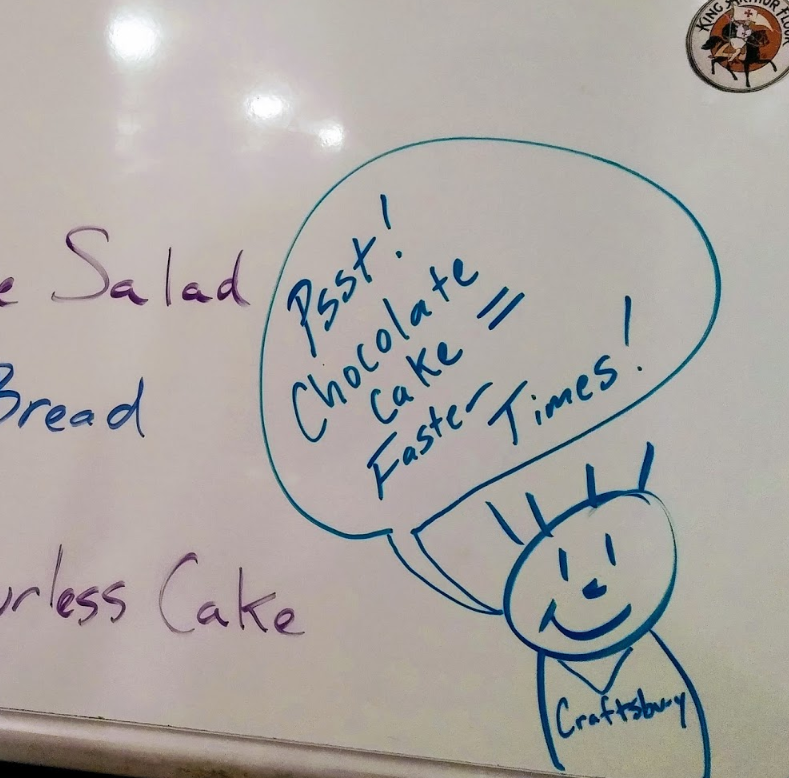 KING ARTHUR FLOUR
e Salad
Bread
urless Cake
Psst!
Chocolate
Cake =
Faster
Times!
Craftsbury